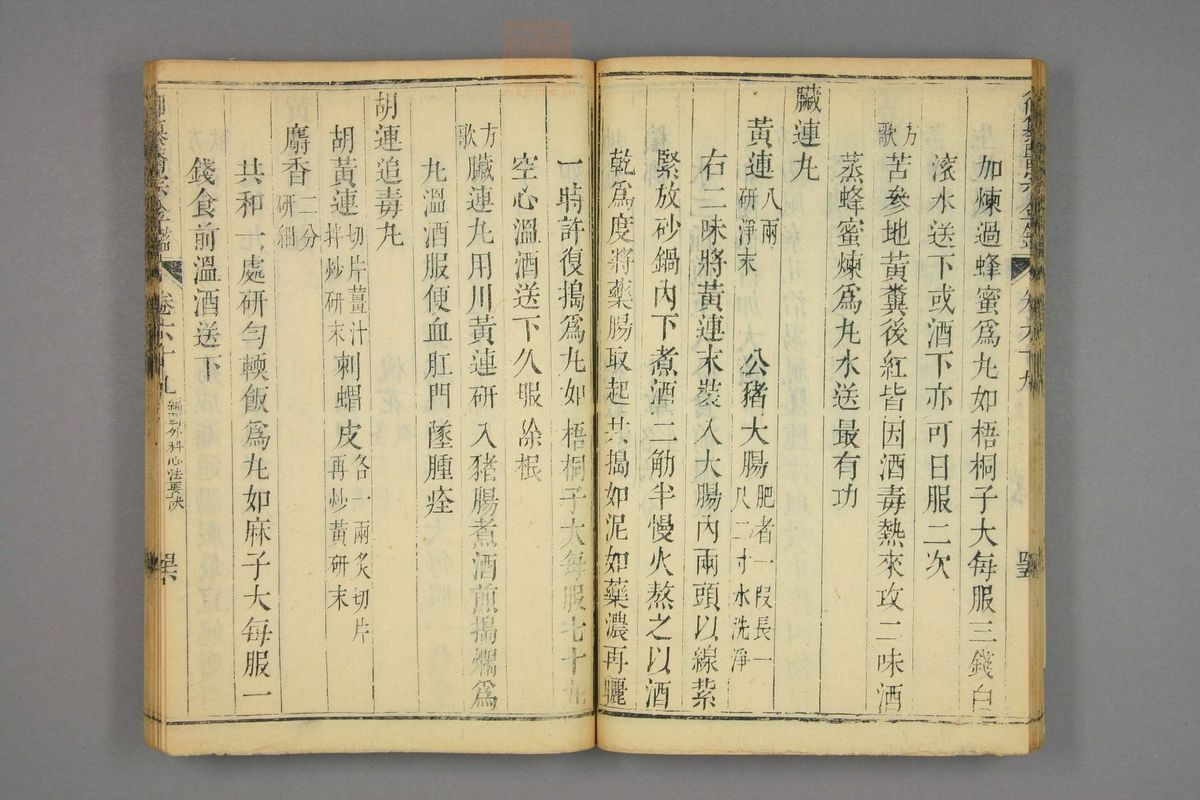 加煉過蜂蜜爲丸如梧桐子大每服三錢白
滾水送下或酒下亦可日服二次
方歌 苦參地黃糞後紅皆因酒毒熱來攻二味酒
蒸蜂蜜煉爲丸水送最有功
臟連丸
黃連 八兩研淨末 公豬大腸 肥者一段長一尺二寸水洗淨
右二味將黃連末裝入大腸內兩頭以線紮
緊放砂鍋內下煮酒二觔半慢火熬之以酒
乾爲度將藥腸取起共搗如泥如藥濃再曬
一時許復搗爲丸如梧桐子大每服七十丸
空心溫酒送下久服除根
方歌 臟連丸用川黃連研入豬腸煮酒煎搗爛爲
丸溫酒服便血肛門墜腫痊
胡連追毒丸
胡黃連 切片薑汁拌炒研末 刺蝟皮 各一兩炙切片再炒黃研末
麝香 二分研細
共和一處研勻輭飯爲丸如麻子大每服一
錢食前溫酒送下
卷六十九
編輯外科心法要訣